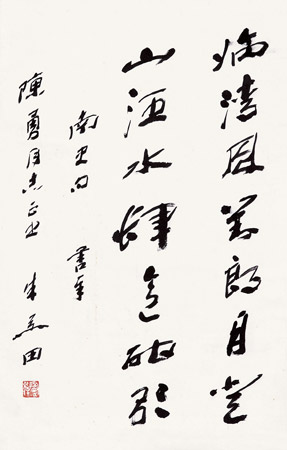 临清風對朗月登
山泛水肆意酣歌
南史句 書奉
陳勇同志正之 朱关田